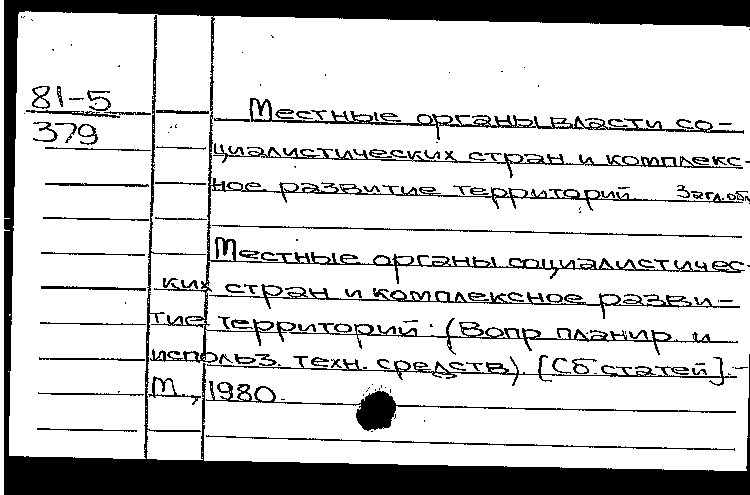 81-5
379
Местные органы власти со-
циалистических стран и комплекс-
ное развитие территорий. Загл. обл
Местные органы социалистичес-
ких стран и комплексное разви-
тие территорий: (Вопр. планир. и
использ. техн. средств). [Сб. статей]. -
М., 1980.